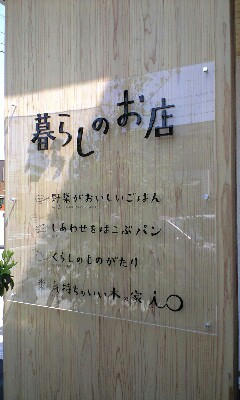 暮らしのお店
野菜がおいしいごはん
しあわせをはこぶパン
くらしのものがたり
気持ちのいい木の家 io